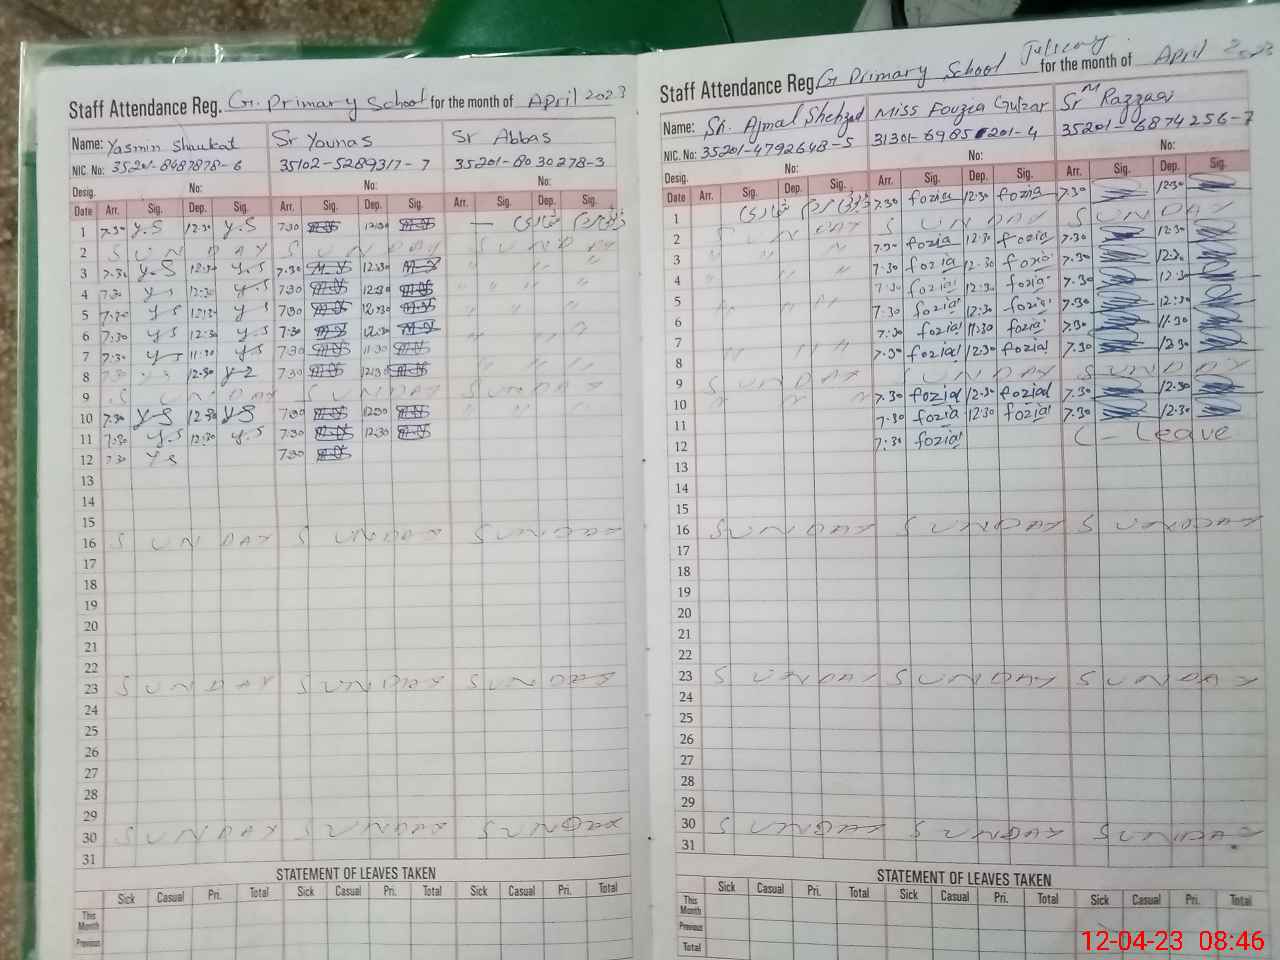 Staff Attendance Reg. G. Primary School for the month of April 2023
Name: Yasmin Shaukat Sr Younas Sr Abbas
NIC. No: 35201-8487878-6 35102-5289317-7 35201-8030278-3
Desig. No: No: No:
Date Arr. Sig. Dep. Sig. Arr. Sig. Dep. Sig. Arr. Sig. Dep. Sig.
1 7.30 y.S 12.30 y.S 7.30 12.30 —
2 SUNDAY SUNDAY SUNDAY
3 7.30 y.S 12.30 y.S 7.30 12.30 " " "
4 7.30 y.s 12.30 y.s 7.30 12.30 " " "
5 7.30 y.s 12.30 y.s 7.30 12.30 " " "
6 7.30 y.s 12.30 y.s 7.30 12.30 " " "
7 7.30 y.s 11.30 y.s 7.30 11.30 " " "
8 7.30 y.s 12.30 y.s 7.30 12.30 " " "
9 SUNDAY SUNDAY SUNDAY
10 7.30 y.S 12.30 y.S 7.30 12.30 " " "
11 7.30 y.s 12.30 y.s 7.30 12.30
12 7.30 y.s 7.30
13
14
15
16 SUNDAY SUNDAY SUNDAY
17
18
19
20
21
22
23 SUNDAY SUNDAY SUNDAY
24
25
26
27
28
29
30 SUNDAY SUNDAY SUNDAY
31
STATEMENT OF LEAVES TAKEN
Sick Casual Pri. Total Sick Casual Pri. Total Sick Casual Pri. Total
This Month
Previous
Staff Attendance Reg. G. Primary School for the month of April 2023
Name: Sh. Ajmal Shehzad Miss Fouzia Gulzar Sr M Razzaq
NIC. No: 35201-4792648-5 31301-6985201-4 35201-6874256-7
Desig. No: No: No:
Date Arr. Sig. Dep. Sig. Arr. Sig. Dep. Sig. Arr. Sig. Dep. Sig.
1 7.30 fozia 12.30 fozia 7.30 12.30
2 SUNDAY SUNDAY SUNDAY
3 " " " 7.30 fozia 12.30 fozia 7.30 12.30
4 " " " 7.30 fozia 12.30 fozia 7.30 12.30
5 " " " 7.30 fozia 12.30 fozia 7.30 12.30
6 " " " 7.30 fozia 12.30 fozia 7.30 12.30
7 " " " 7.30 fozia 11.30 fozia 7.30 11.30
8 " " " 7.30 fozia 12.30 fozia 7.30 12.30
9 SUNDAY SUNDAY SUNDAY
10 " " " 7.30 fozia 12.30 fozia 7.30 12.30
11 7.30 fozia 12.30 fozia 7.30 12.30
12 7.30 fozia C-Leave
13
14
15
16 SUNDAY SUNDAY SUNDAY
17
18
19
20
21
22
23 SUNDAY SUNDAY SUNDAY
24
25
26
27
28
29
30 SUNDAY SUNDAY SUNDAY
31
STATEMENT OF LEAVES TAKEN
Sick Casual Pri. Total Sick Casual Pri. Total Sick Casual Pri. Total
This Month
Previous
Total
12-04-23 08:46